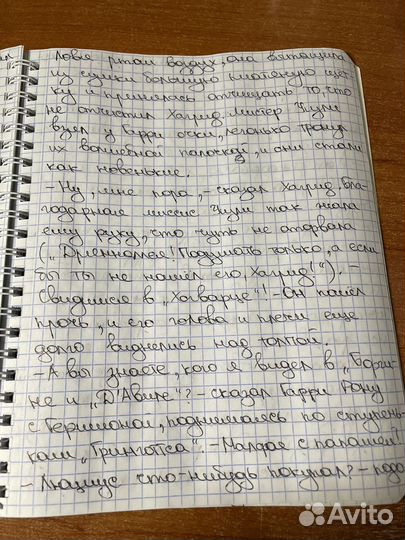 Ловя ртом воздух, она вытащила
из сумки большую платяную щёт
ку и принялась отчищать то, что
не отчистил Хагрид. Мистер Уизли
взял у Гарри очки, легонько тронул
их волшебной палочкой, и они стали
как новенькие.
– Ну, мне пора, – сказал Хагрид. Бла-
годарная миссис Уизли так жала
ему руку, что чуть не оторвала
(„Дрянналлея! Подумать только, а если
бы ты не нашёл его, Хагрид!"). –
Свидимся в „Хогварце"! – Он пошёл
прочь, и его голова и плечи еще
долго виднелись над толпой.
– А вы знаете, кого я видел в „Борги-
не и „Д'Авиле"? – сказал Гарри Рону
с Гермионой, поднимаясь по ступень-
кам „Гринготтса". – Малфоя с папашей!
– Люциус что-нибудь покупал? – подо
Avito